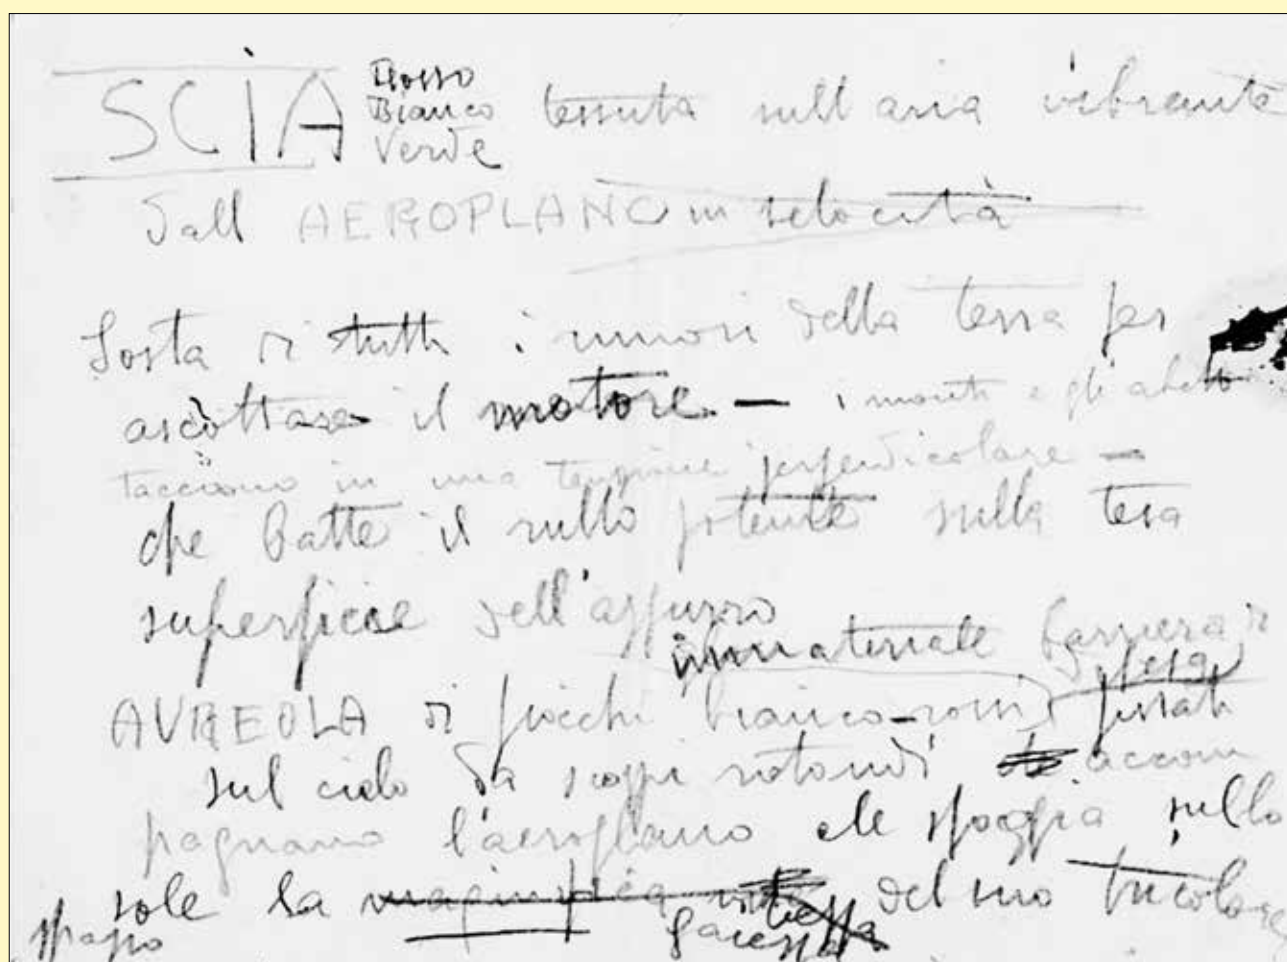 SCIA Rosso
Bianco
Verde
tessuta sull'aria vibrante
dall AEROPLANO in velocità
Sosta di tutti i rumori della terra per
ascòttare il motore. — i monti e gli
tacciono in una tensione perpendicolare —
che batte il rullo potente sulla tesa
superficie dell'azzurro
immateriale barriera di
AUREOLA di fiocchi bianco-rossi fissati
sul cielo da scoppi rotondi accom
pagnano l'aeroplano che sfoggia sullo
sole la del suo tricolore
spazio